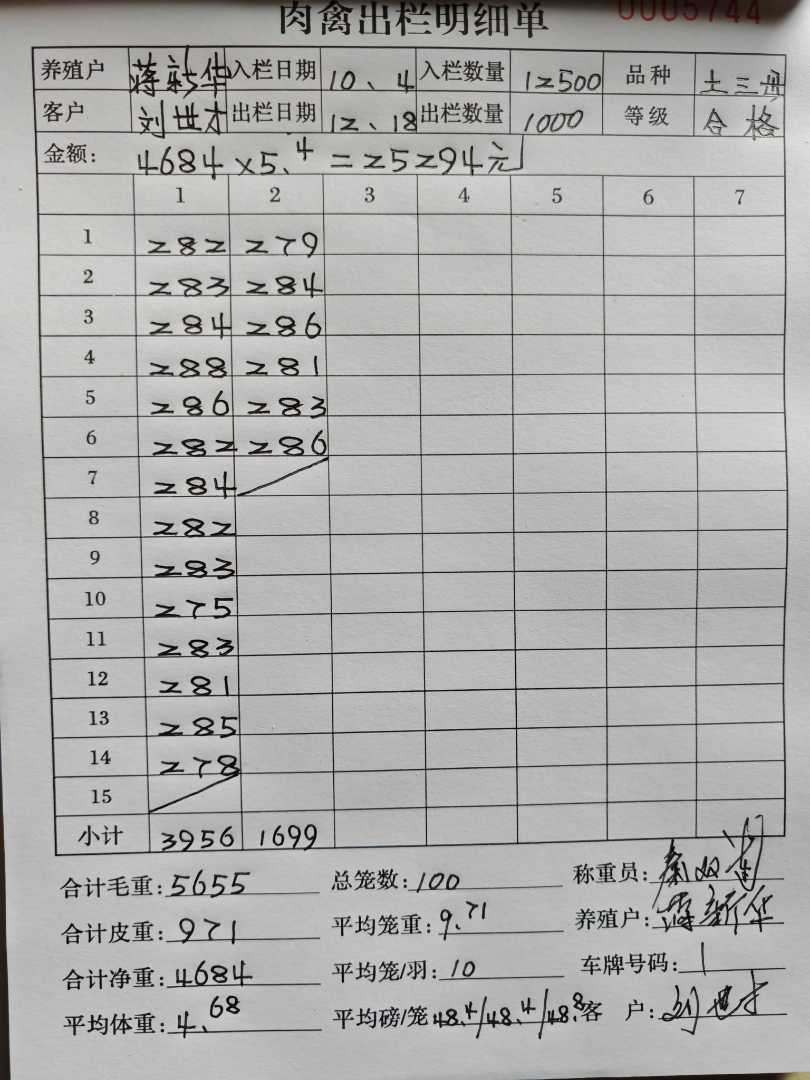 肉禽出栏明细单 0005744
养殖户 蒋新华 入栏日期 10、4 入栏数量 12500 品种 土三丹
客户 刘世才 出栏日期 12、18 出栏数量 1000 等级 合格
金额: 4684×5.4=25294元
1 2 3 4 5 6 7
1 282 279
2 283 284
3 284 286
4 288 281
5 286 283
6 282 286
7 284
8 282
9 283
10 275
11 283
12 281
13 285
14 278
15
小计 3956 1699
合计毛重: 5655 总笼数: 100 称重员: 秦双
合计皮重: 971 平均笼重: 9.71 养殖户: 蒋新华
合计净重: 4684 平均笼/羽: 10 车牌号码: 1
平均体重: 4.68 平均磅/笼 48.4/48.4/48.8 客 户: 刘世才